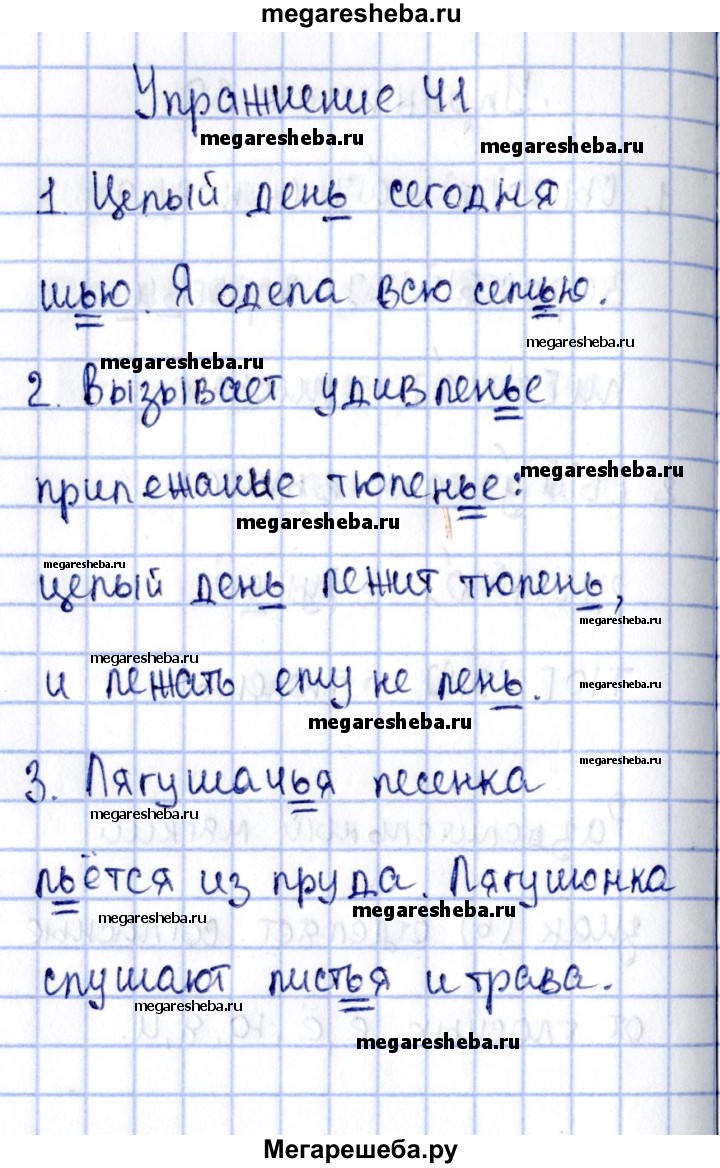 megaresheba.ru
Упражнение 41
megaresheba.ru
megaresheba.ru
1. Целый день сегодня
шью. Я одела всю семью.
megaresheba.ru
megaresheba.ru
2. Вызывает удивленье
прилежание тюленье:
megaresheba.ru
megaresheba.ru
megaresheba.ru
целый день лежит тюлень,
megaresheba.ru
megaresheba.ru
и лежать ему не лень.
megaresheba.ru
megaresheba.ru
3. Лягушачья песенка
megaresheba.ru
megaresheba.ru
льётся из пруда. Лягушонка
megaresheba.ru
megaresheba.ru
слушают листья и трава.
megaresheba.ru
megaresheba.ru
Мегарешеба.ру